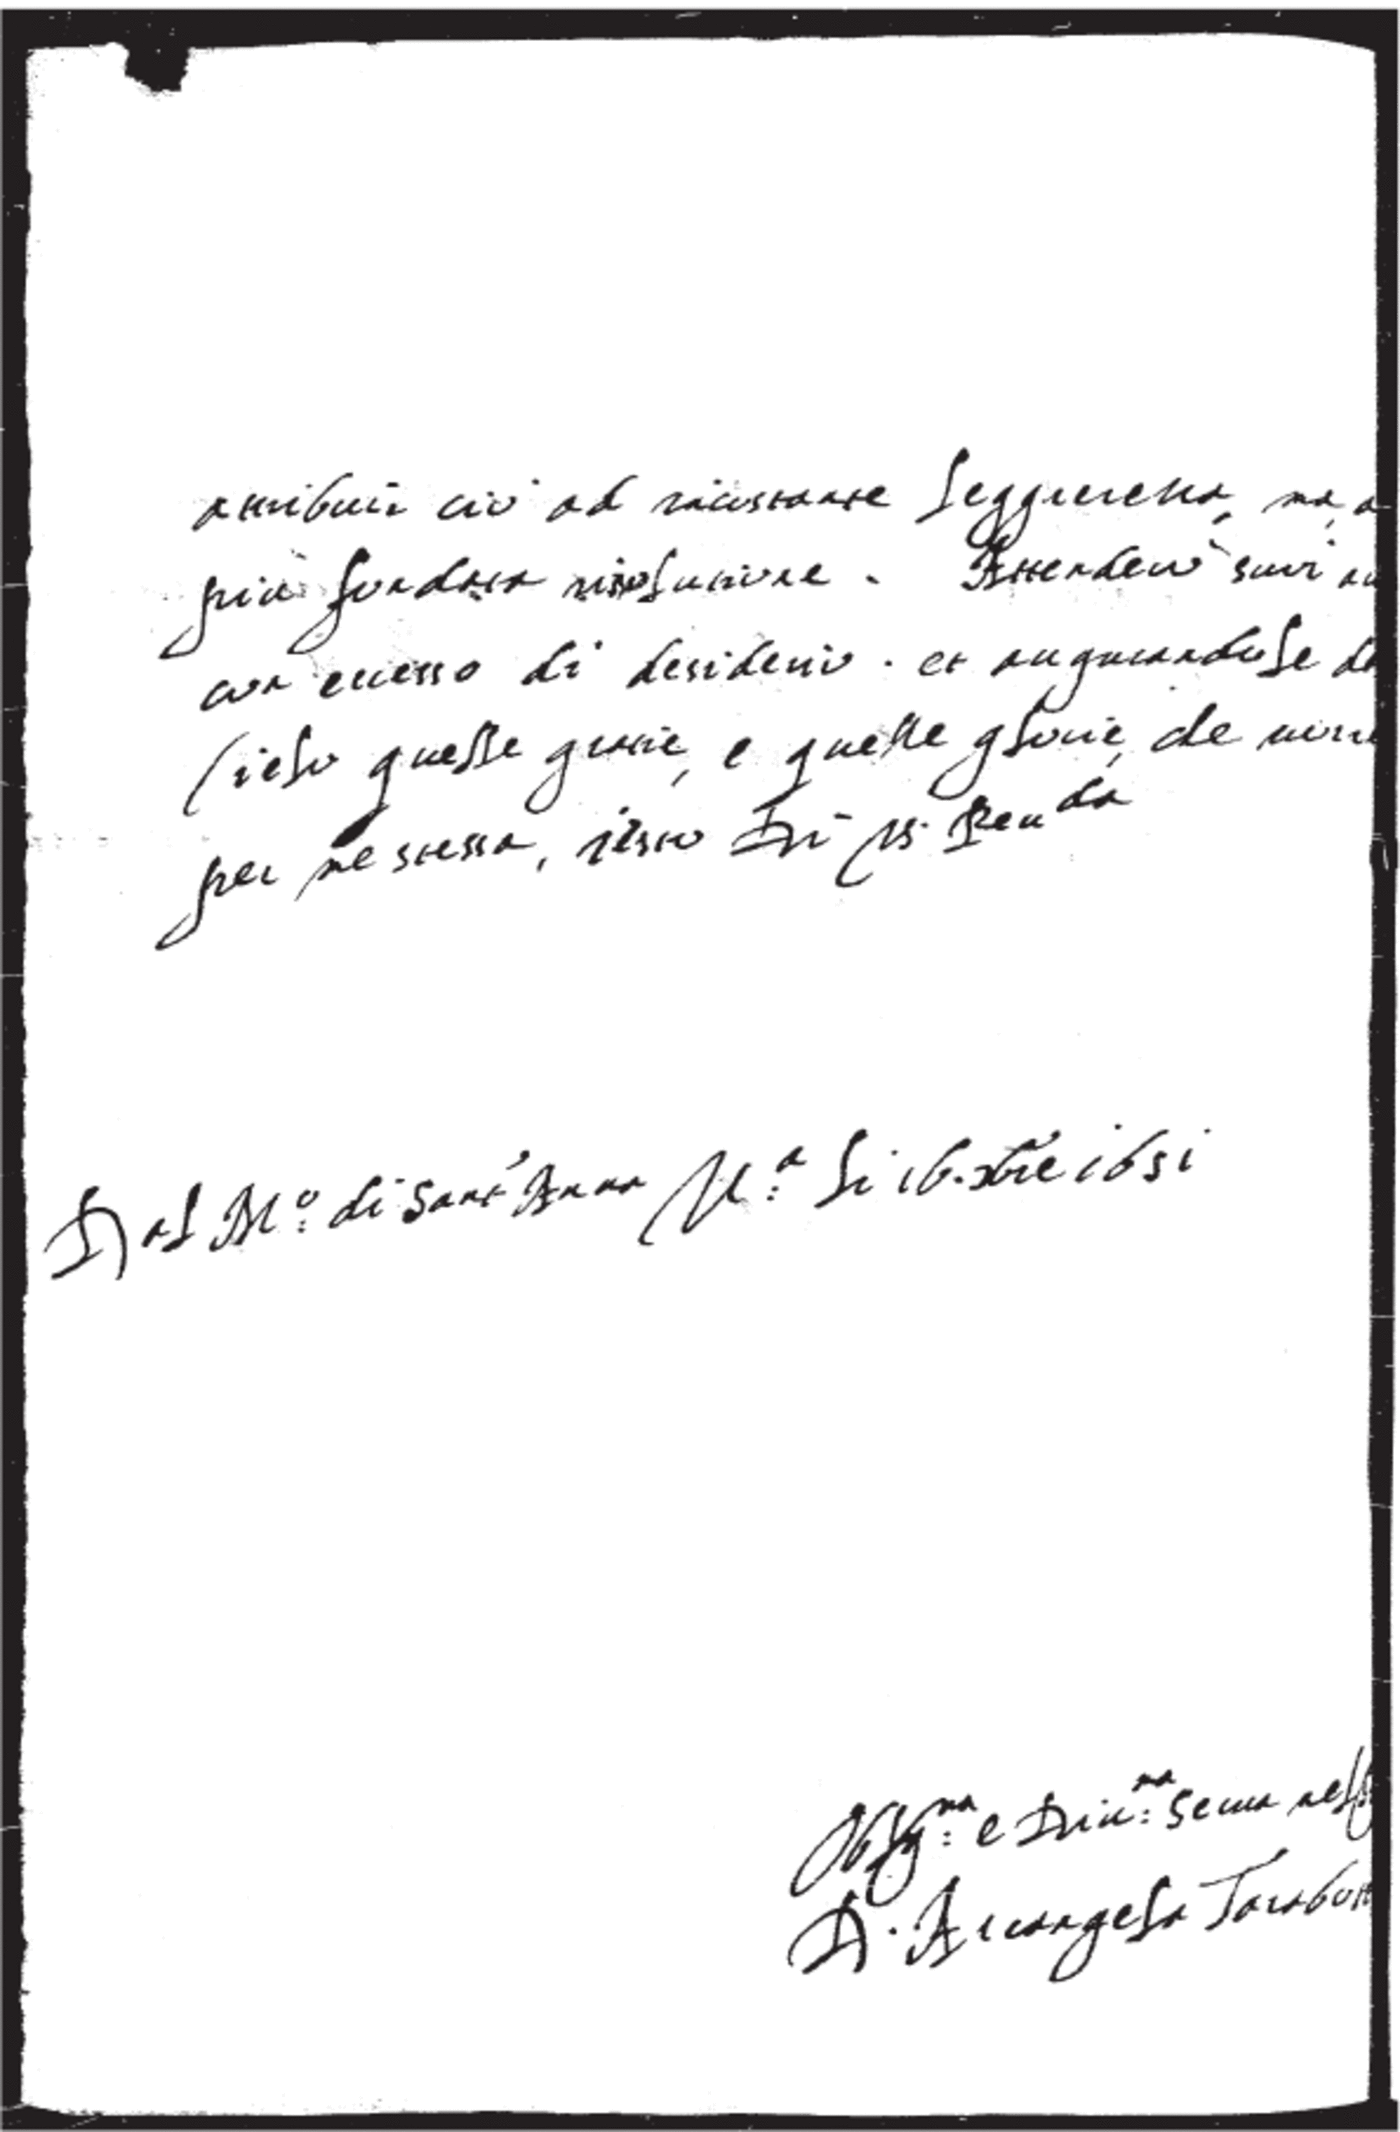 attribuir ciò ad incostante leggierezza, ma a
più fondata risolutione. Attenderò suoi
con eccesso di desiderio. et augurandole da
Cielo quelle gratie, e quelle glorie, che vorre
per me stessa, resto Di V.S. Reu.da
Dal M.o di Sant'Anna li 16. xbre 1651
Oblig.ma e Diu.ma Serua nel
D. Arcangela Tarabott